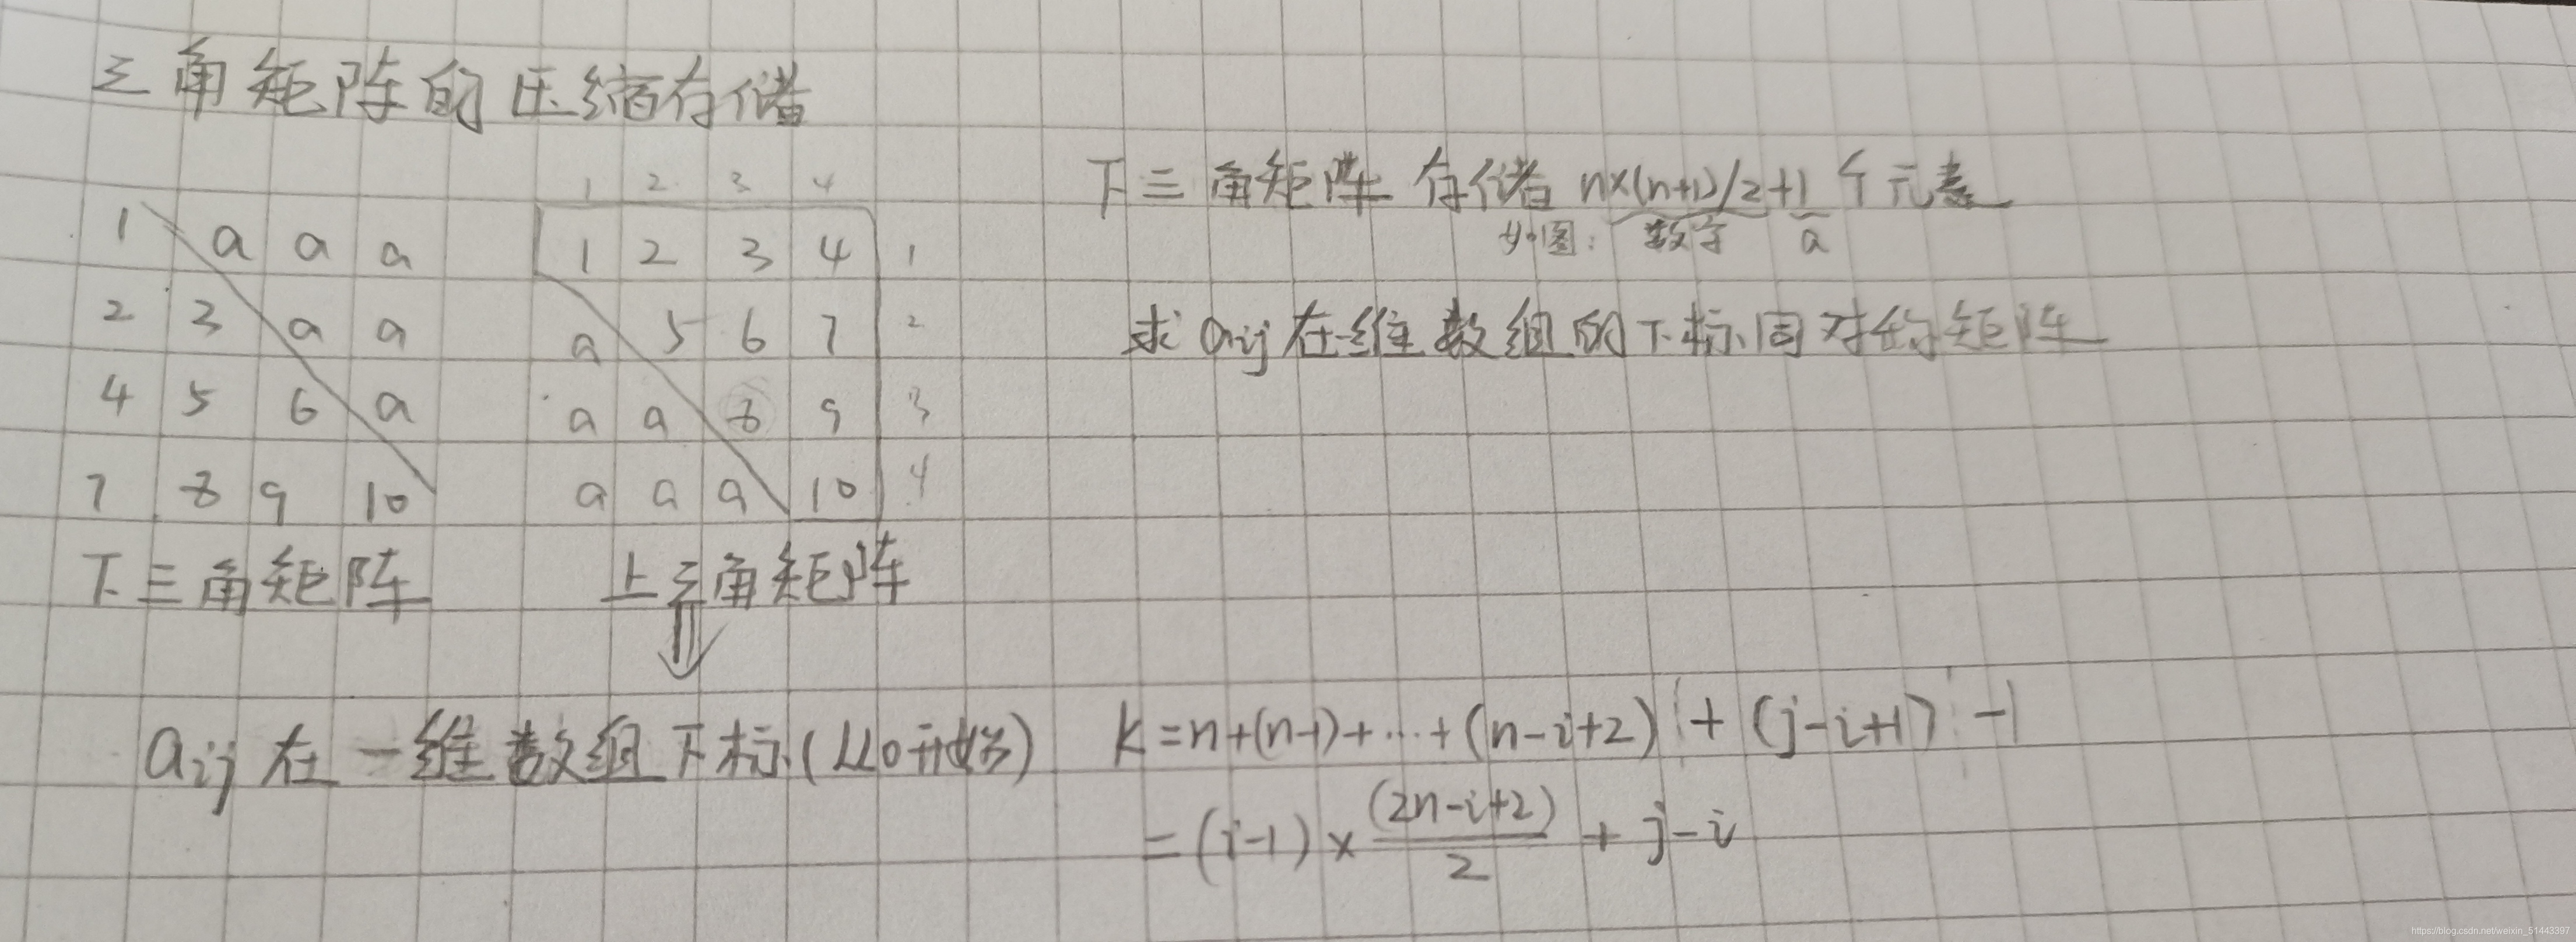 三角矩阵的压缩存储
1 2 3 4
1 a a a
2 3 a a
4 5 6 a
7 8 9 10
下三角矩阵
1 2 3 4 1
a 5 6 7 2
a a 8 9 3
a a a 10 4
上三角矩阵
下三角矩阵 存储 n×(n+1)/2+1 个元素
如图: 数字 a
求 aij 在一维数组的下标同对称矩阵
aij 在一维数组下标(从0开始) k=n+(n-1)+...+(n-i+2)+(j-i+1)-1
=(i-1)×(2n-i+2)/2+j-i
https://blog.csdn.net/weixin_51443397